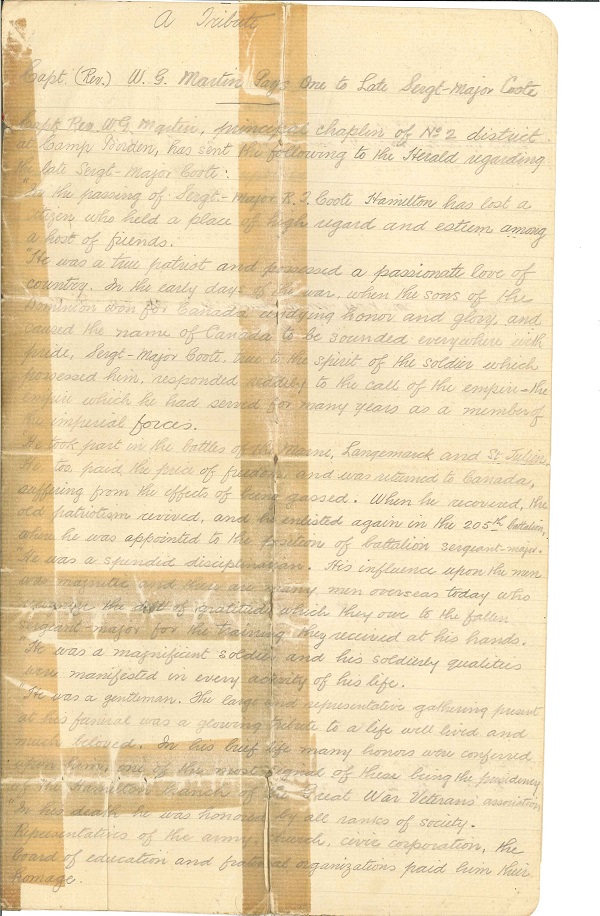 A Tribute
Capt. (Rev.) W. G. Martin Pays One to Late Sergt-Major Coote
Capt. Rev. W.G. Martin, principal chaplin of No 2 district
at Camp Borden, has sent the following to the Herald regarding
the late Sergt-Major Coote:
"In the passing of Sergt.-Major R. J. Coote Hamilton has lost a
citizen who held a place of high regard and esteem among
a host of fiends.
"He was a true patriot and possessed a passionate love of
country. In the early days of the war, when the sons of the
Dominion won for Canada undying honor and glory, and
caused the name of Canada to be sounded everywhere with
pride, Sergt-Major Coote, true to the spirit of the soldier which
possessed him, responded readily to the call of the empire-the
empire which he had served for many years as a member of
the imperial forces.
He took part in the battles of the Marne, Langemarck and St Julien.
He too paid the price of freedom and was returned to Canada,
suffering from the effects of being gassed. When he recovered, the
old patriotism revived, and he enlisted again in the 205th battalion,
where he was appointed to the position of battalion sergeant-major.
"He was a splendid disciplinarian. His influence upon the men
was magnetic and there are many men overseas today who
the debt of gratitude which they owe to the fallen
sergeant major for the training they received at his hands.
"He was a magnificent soldier and his soldierly qualities
were manifested in every activity of his life.
"He was a gentleman. The large and representative gathering present
at his funeral was a glowing tribute to a life well lived and
much beloved. In his brief life many honors were conferred
upon him, one of the most signed of these being the presidency
of the Hamilton branch of the Great War Veterans association
"In his death he was honored by all ranks of society.
Representatives of the army, church, civic corporation, the
board of education and fraternal organizations paid him their
homage.